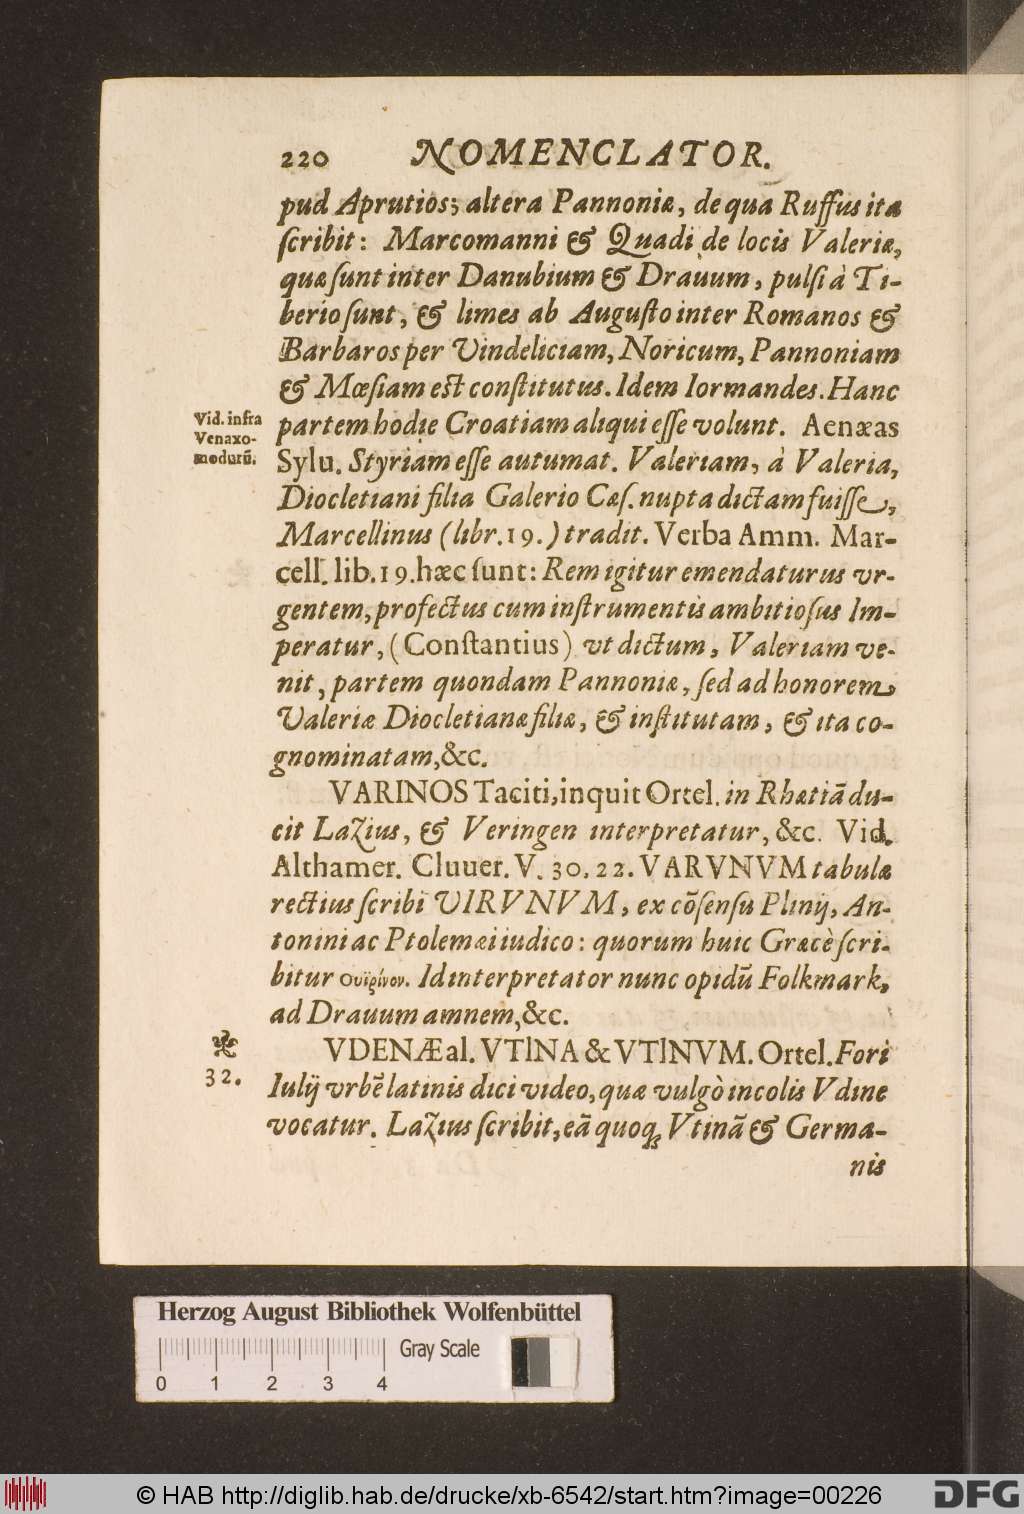 220 NOMENCLATOR.
pud Aprutios; altera Pannoniæ, de qua Ruffus ita
ſcribit: Marcomanni & Quadi de locis Valeriæ,
quæ ſunt inter Danubium & Drauum, pulſi à Ti-
berio ſunt, & limes ab Auguſto inter Romanos &
Barbaros per Vindeliciam, Noricum, Pannoniam
& Mœſiam est conſtitutus. Idem Iormandes. Hanc
partem hodie Croatiam aliqui eſſe volunt. Aenæas
Sylu. Styriam eſſe autumat. Valeriam, à Valeria,
Diocletiani filia Galerio Cæſ. nupta dictam fuiſſe,
Marcellinus (libr. 19.) tradit. Verba Amm. Mar-
cell. lib. 19. hæc ſunt: Rem igitur emendaturus vr-
gentem, profectus cum inſtrumentis ambitioſus Im-
peratur, (Conſtantius) vt dictum, Valeriam ve-
nit, partem quondam Pannoniæ, ſed ad honorem
Valeriæ Diocletianæ filiæ, & inſtitutam, & ita co-
gnominatam, &c.
Vid. infra
Venaxo-
modurū.
VARINOS Taciti, inquit Ortel. in Rhætiā du-
cit Lazius, & Veringen interpretatur, &c. Vid.
Althamer. Cluuer. V. 30. 22. VARVNVM tabulæ
rectius ſcribi VIRVNVM, ex cōſenſu Plinij, An-
tonini ac Ptolemæi iudico: quorum huic Græcè ſcri-
bitur Ουϊρίνον. Id interpretator nunc opidū Folkmark,
ad Drauum amnem, &c.
32.
VDENÆ al. VTINA & VTINVM. Ortel. Fori
Iulij vrbē latinis dici video, quæ vulgò incolis Vdine
vocatur. Lazius ſcribit, eā quoq; Vtinā & Germa-
nis
Herzog August Bibliothek Wolfenbüttel
Gray Scale
0 1 2 3 4
© HAB http://diglib.hab.de/drucke/xb-6542/start.htm?image=00226
DFG